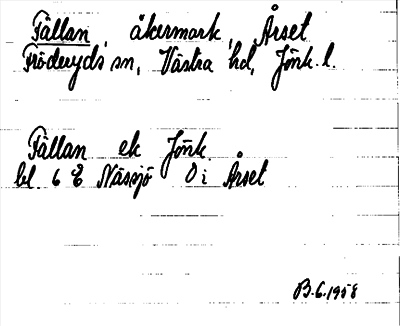 Fällan, åkermark, Årset
Fröderyds sn, Västra hd, Jönk. l.
Fällan ek Jönk.
bl. 6 E Nässjö O i Årset
B.G. 1958